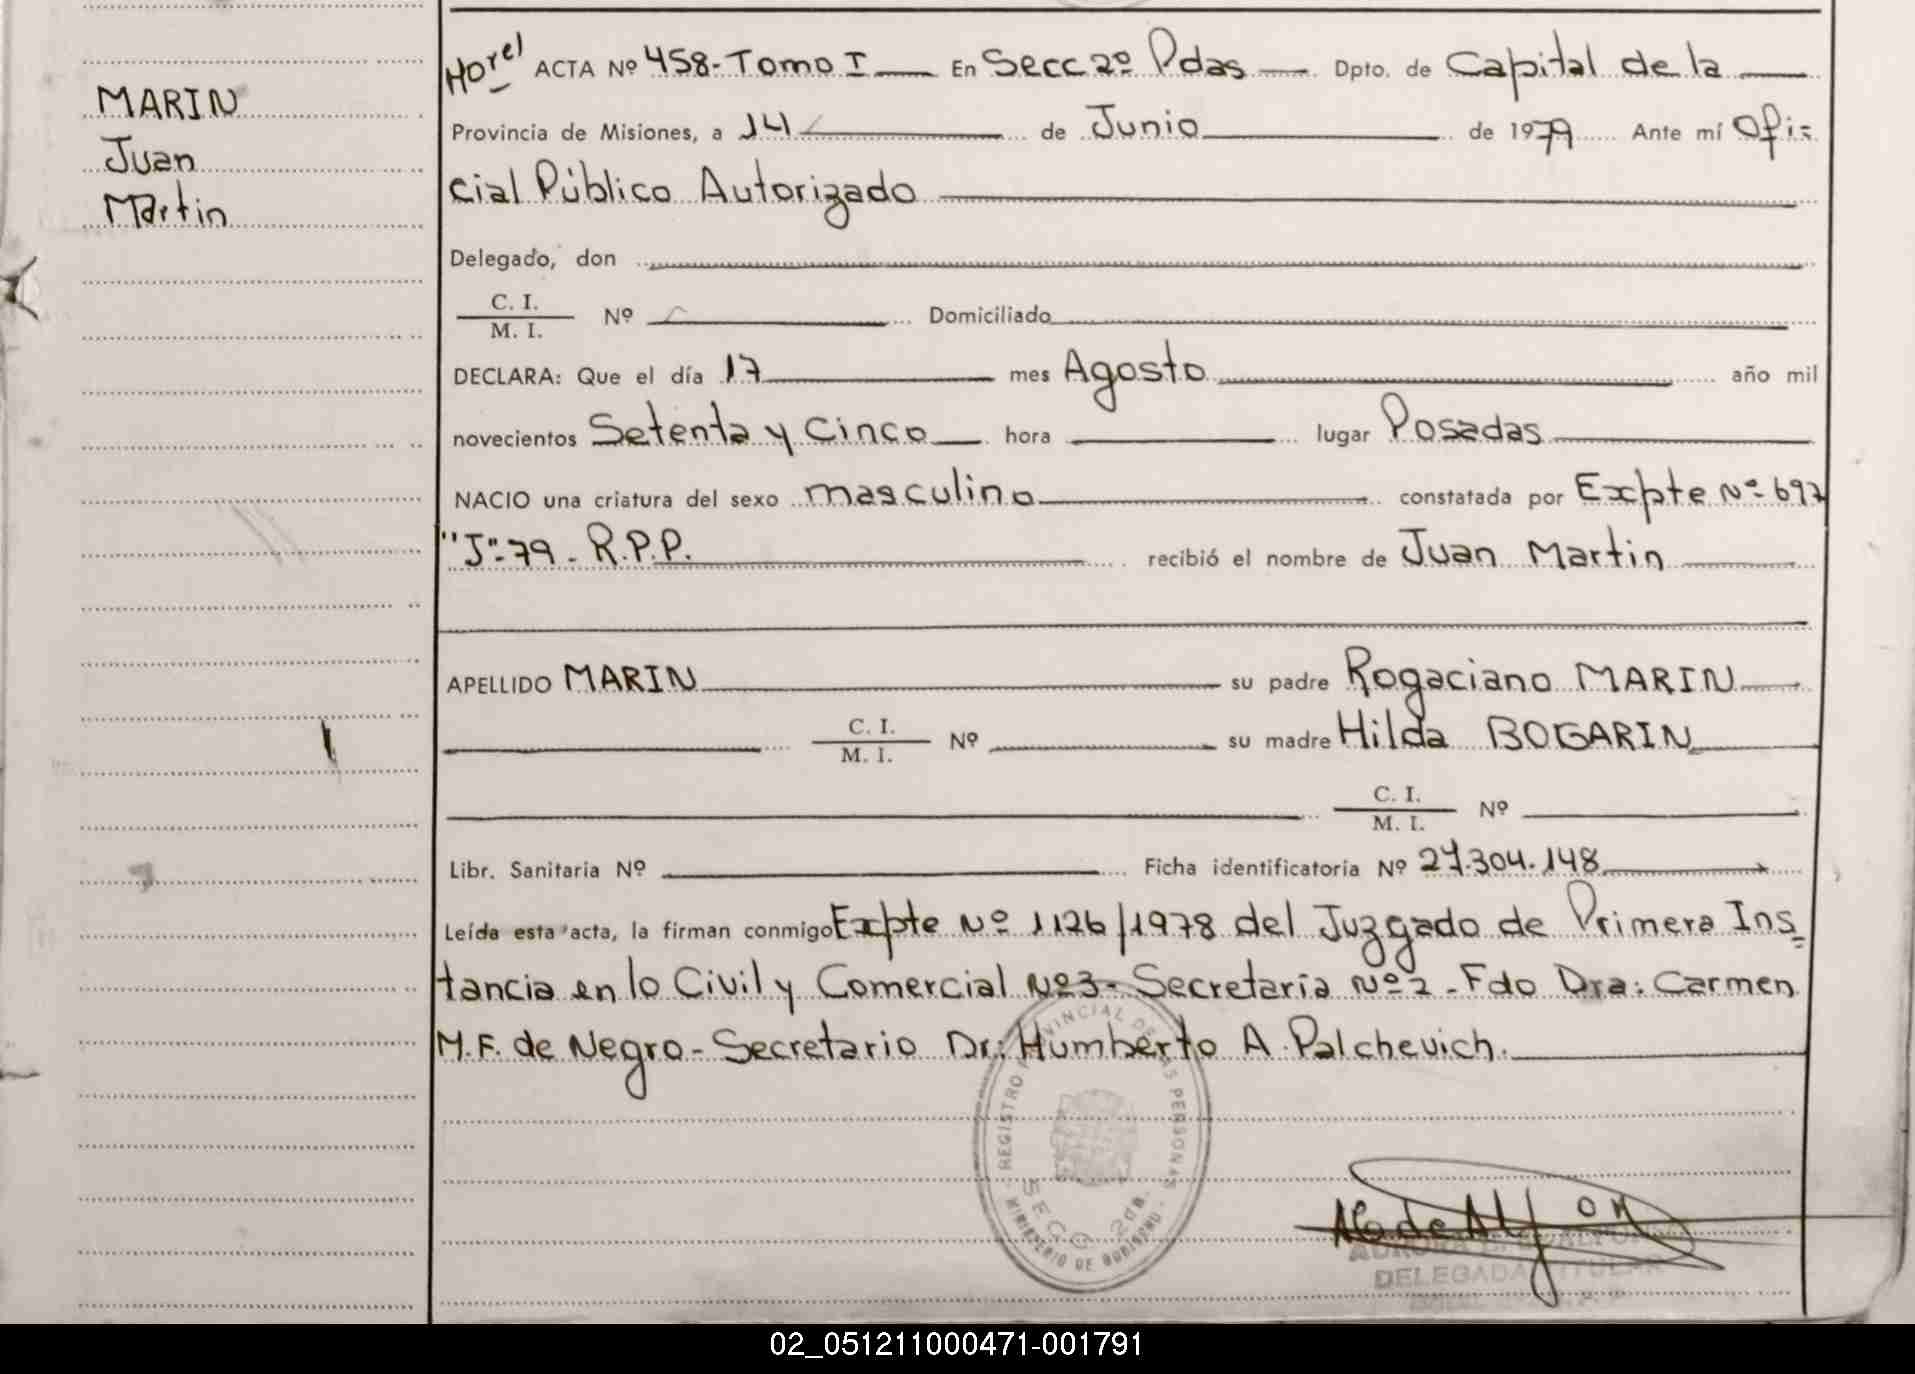 MARIN
Juan
Martin
ACTA Nº 458-Tomo I En Secc 2º Pdas Dpto. de Capital de la
Provincia de Misiones, a 14 de Junio de 1979 Ante mí Ofi-
cial Público Autorizado
Delegado, don
C. I.
M. I. Nº Domiciliado
DECLARA: Que el día 17 mes Agosto año mil
novecientos Setenta y Cinco hora lugar Posadas
NACIO una criatura del sexo masculino constatada por Expte Nº 697
"J"-79-R.P.P. recibió el nombre de Juan Martin
APELLIDO MARIN su padre Rogaciano MARIN
C. I.
M. I. Nº su madre Hilda BOGARIN
C. I.
M. I. Nº
Libr. Sanitaria Nº Ficha identificatoria Nº 27.304.148
Leída esta acta, la firman conmigo Expte Nº 1126/1978 del Juzgado de Primera Ins-
tancia en lo Civil y Comercial Nº3- Secretaría Nº2-Fdo Dra: Carmen
M.F. de Negro-Secretario Dr: Humberto A. Palchevich.
REGISTRO PROVINCIAL DE LAS PERSONAS
SECC 2DA.
MINISTERIO DE GOBIERNO
DELEGADA TITULAR
02_051211000471-001791